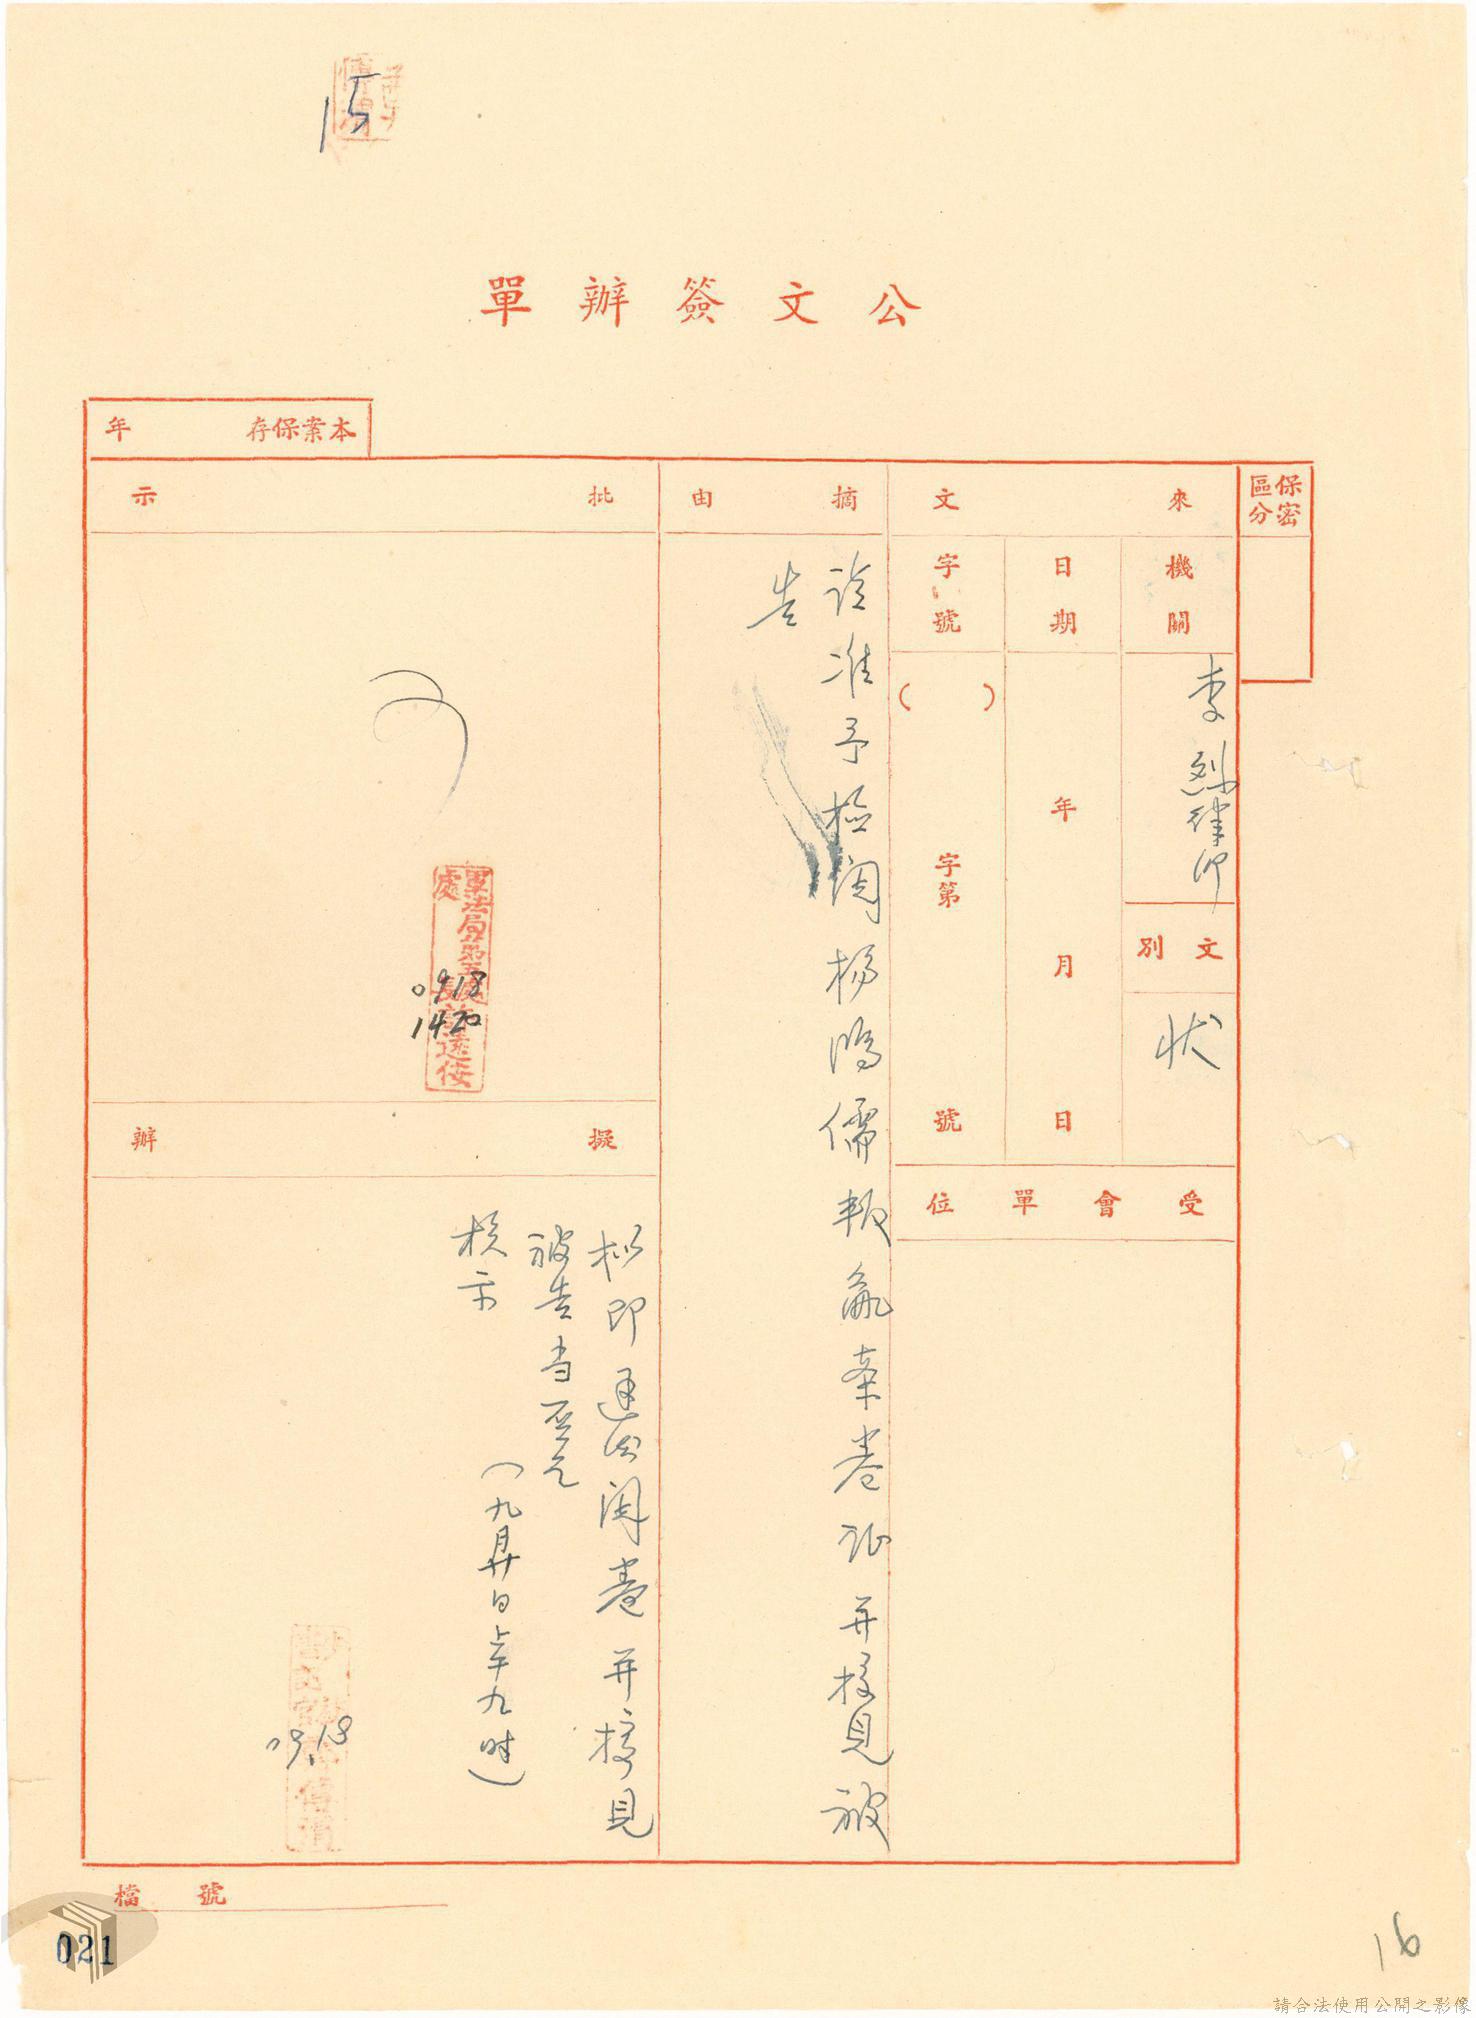 15
公文簽辦單
本案保存 年
保密區分
來文
機關
李烈律师
文別
状
日期
年 月 日
字號
( )
字第 號
受會單位
摘由
請准予檢閱楊鴻儒叛亂案卷证并接見被
告
批示
軍法局第五處
處長
0918
1420
擬辦
拟即通知閱卷并接見
被告当否乞
核示
(九月廿日上午九时)
09.18
檔號
021
16
請合法使用公開之影像